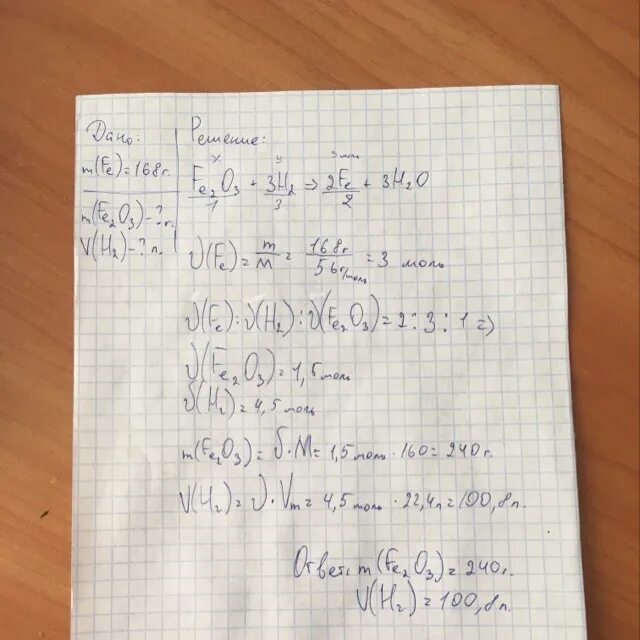 Дано:
m(Fe)=168г.
m(Fe2O3)-?г.
V(H2)-?л.
Решение:
x y 3моль
Fe2O3 + 3H2 => 2Fe + 3H2O
1 3 2
ν(Fe)= m/M = 168г/56г/моль = 3 моль
ν(Fe):ν(H2):ν(Fe2O3)=2:3:1=>
ν(Fe2O3)=1,5моль
ν(H2)=4,5моль
m(Fe2O3)=ν·M=1,5моль·160=240г.
V(H2)=ν·Vm=4,5моль·22,4л=100,8л.
Ответ: m(Fe2O3)=240г.
V(H2)=100,8л.